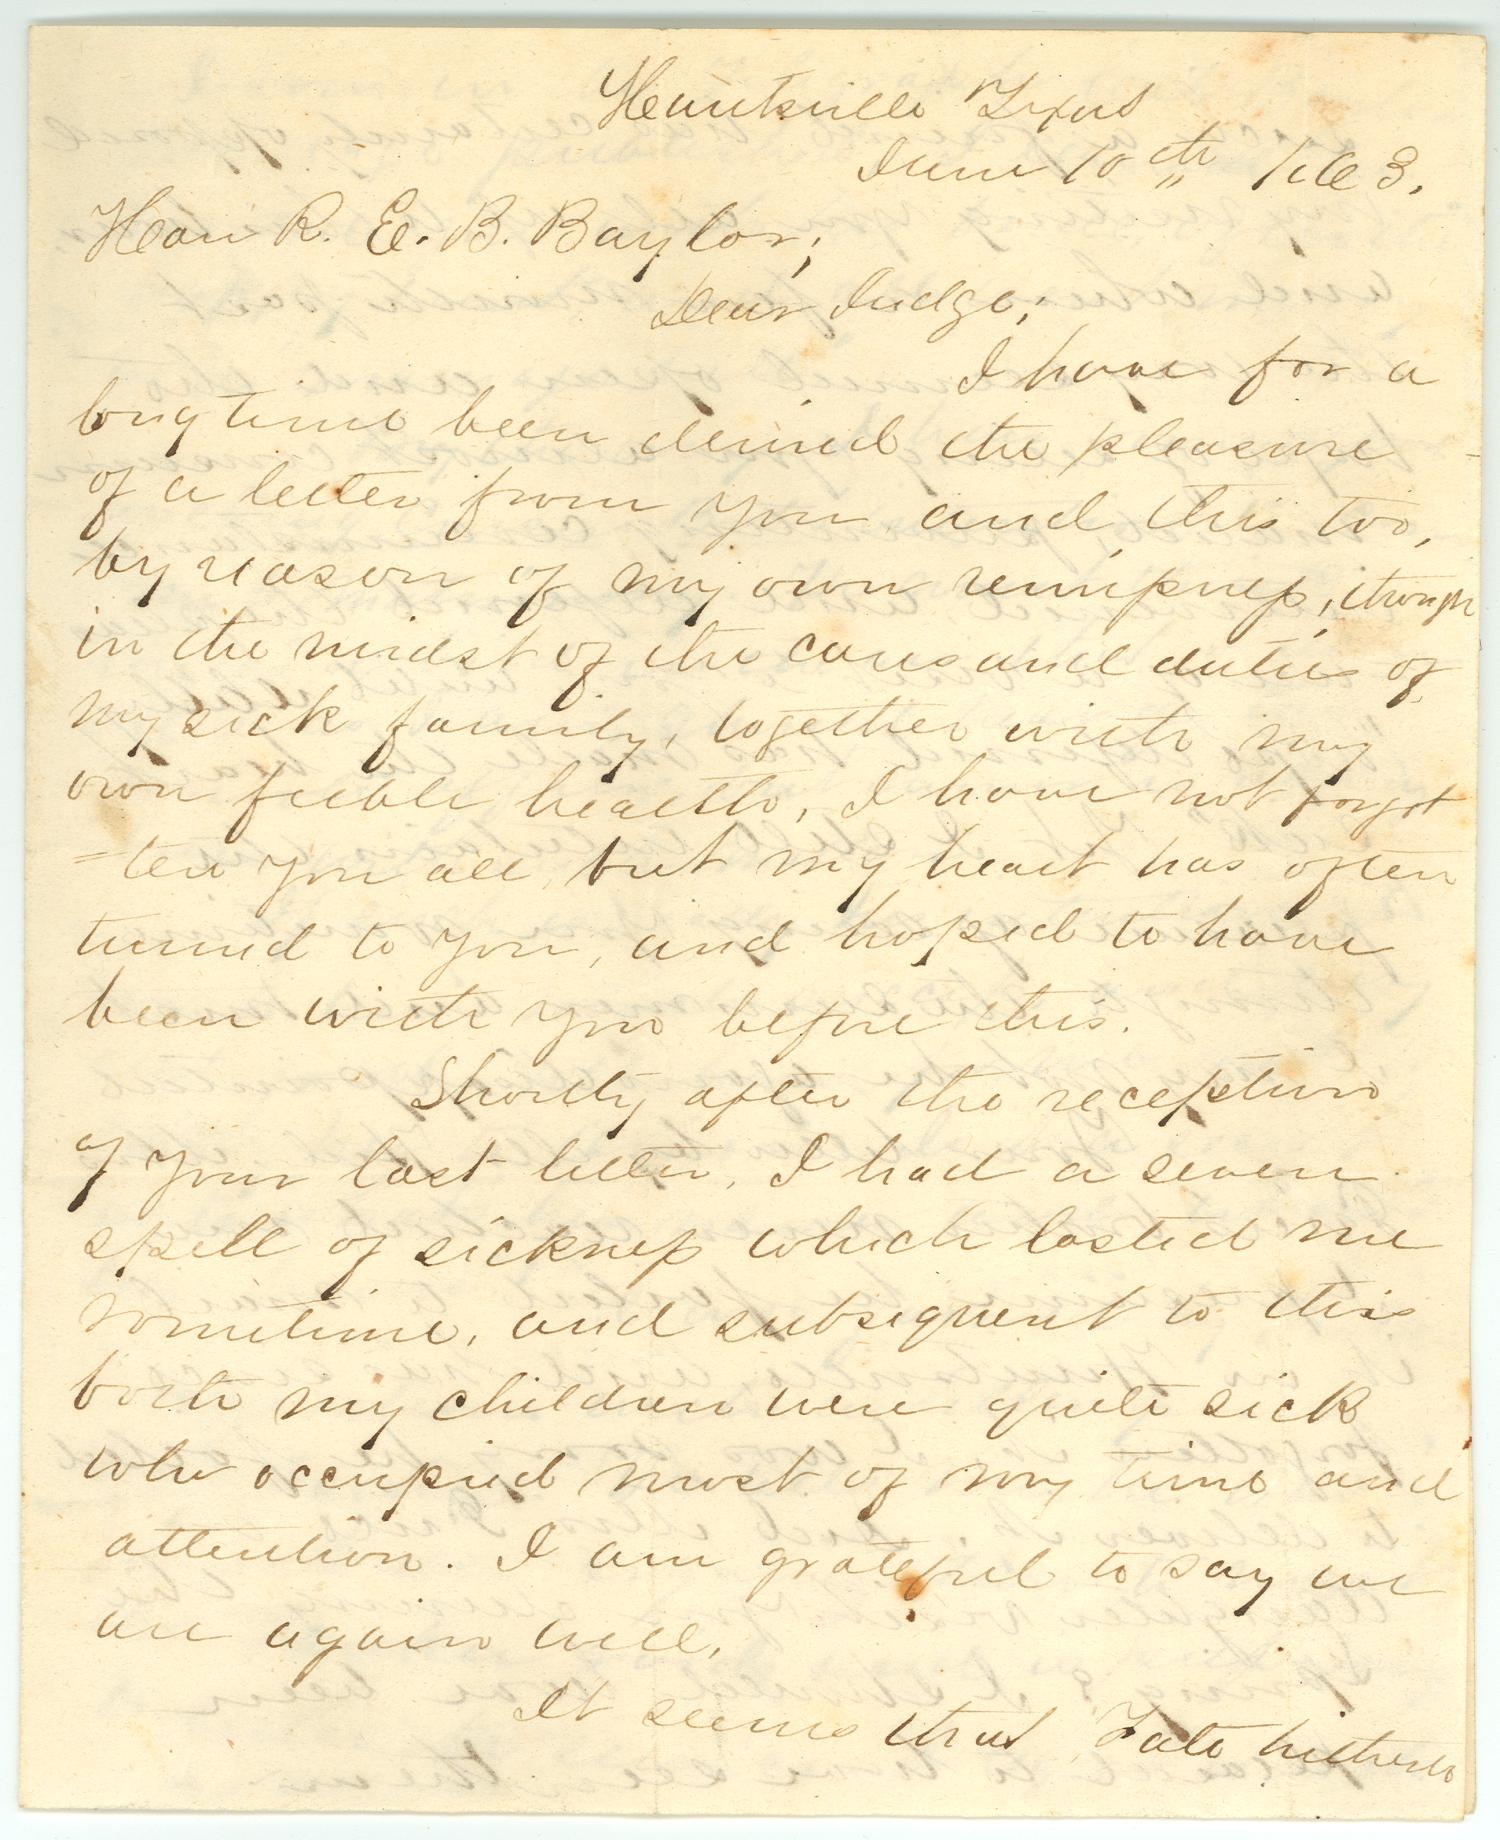 Huntsville Texas
June 10th 1863.
Hon R. E. B. Baylor;
Dear Judge;
I have for a
long time been denied the pleasure
of a letter from you and this too,
by reason of my own remissness, though
in the midst of the cares and duties of
my sick family, together with my
own feeble health, I have not forgot
=ten you all, but my heart has often
turned to you, and hoped to have
been with you before this.
Shortly after the reception
of your last letter, I had a severe
spell of sickness which lasted me
sometime, and subsequent to this
both my children were quite sick
who occupied most of my time and
attention. I am grateful to say we
are again well.
It seems that Fate hitherto